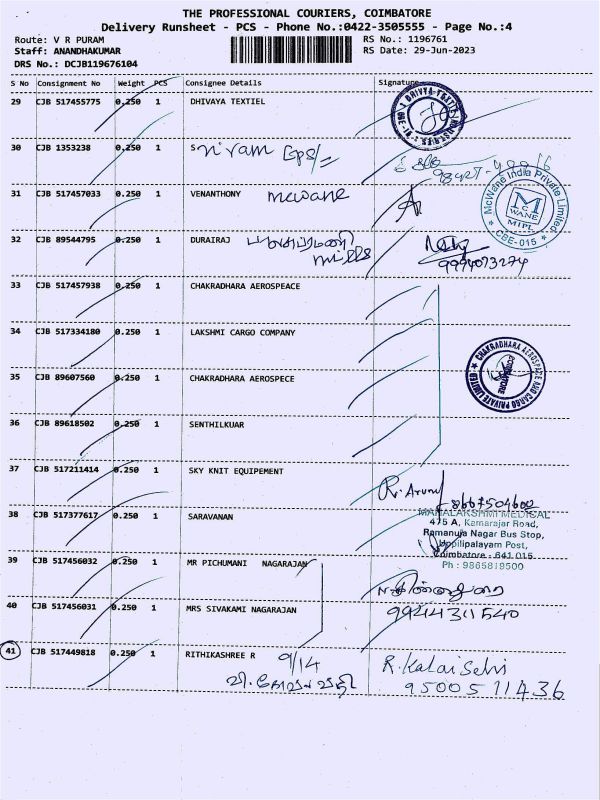 THE PROFESSIONAL COURIERS, COIMBATORE
Delivery Runsheet - PCS - Phone No.:0422-3505555 - Page No.:4
Route: V R PURAM RS No.: 1196761
Staff: ANANDHAKUMAR RS Date: 29-Jun-2023
DRS No.: DCJB119676104
S No Consignment No Weight PCS Consignee Details Signature
29 CJB 517455775 0.250 1 DHIVAYA TEXTIEL
30 CJB 1353238 0.250 1 S
31 CJB 517457033 0.250 1 VENANTHONY mcwane
McWane India Private Limited
McWANE
MIPL
CBE-015
32 CJB 89544795 0.250 1 DURAIRAJ
mills 9994073274
33 CJB 517457938 0.250 1 CHAKRADHARA AEROSPEACE
34 CJB 517334180 0.250 1 LAKSHMI CARGO COMPANY
CHAKRADHARA AEROSPACE AND CARGO PRIVATE LIMITED
COIMBATORE
35 CJB 89607560 0.250 1 CHAKRADHARA AEROSPECE
36 CJB 89618502 0.250 1 SENTHILKUAR
37 CJB 517211414 0.250 1 SKY KNIT EQUIPEMENT
R. Arun 8667504602
MAHALAKSHMI MEDICAL
38 CJB 517377617 0.250 1 SARAVANAN
475 A, Kamarajar Road,
Ramanuja Nagar Bus Stop,
Uppilipalayam Post,
Coimbatore - 641 015
Ph : 9865819500
39 CJB 517456032 0.250 1 MR PICHUMANI NAGARAJAN
40 CJB 517456031 0.250 1 MRS SIVAKAMI NAGARAJAN
9944311540
41 CJB 517449818 0.250 1 RITHIKASHREE R 9/14 R. Kalai Selvi
9500511436